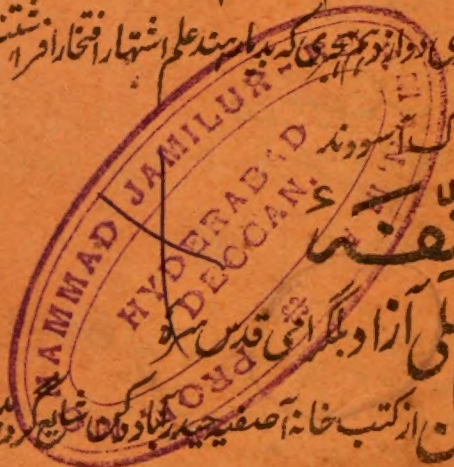 دوازدهم هجری که بدیار هند علم اشتهار افتخار افراشتند
آسودند
علی آزاد بلگرامی قدس سره
از کتب خانه آصفیه حیدرآباد دکن شایع
MAMMAD JAMILUR
HYDERABAD
DECCAN.
PRO